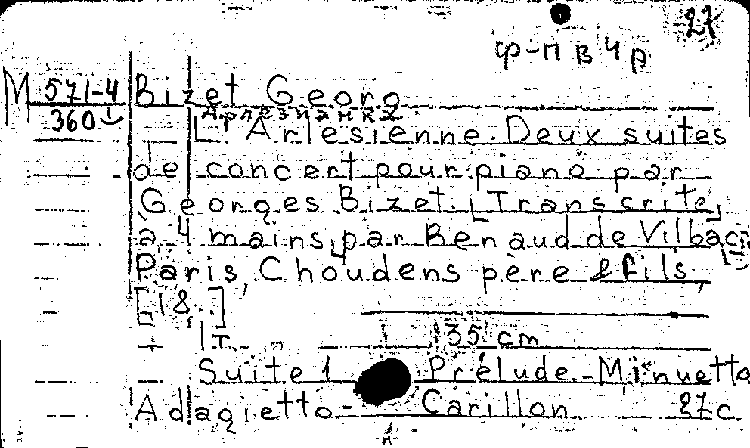 27
ф-п в 4 р
M 571-4 Bizet Georg
360 Арлезианка
L'Arlesienne. Deux suites
de concert pour piano par
Georges Bizet. [Transcrite,
à 4 mains, par Renaud de Vilbac]
Paris, Choudens père & fils,
[18..]
1 т. 35 cm
Suite 1 Prélude.-Minuetto
Adagietto- Carillon 27c